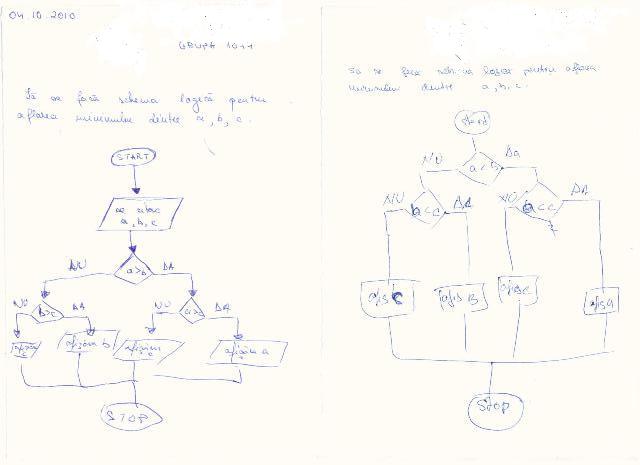 04.10.2010
GRUPA 1011
Să se facă schema logică pentru
aflarea minimului dintre a, b, c.
START
se citesc
a, b, c
a>b
NU
DA
b>c
NU
DA
a>c
NU
DA
c
afișăm b
afișăm
c
afișăm a
STOP
să se facă schema logică pentru aflarea
minimului dintre a, b, c.
Start
a<B
NU
Da
a<c
NU
DA
a<c
NU
DA
afis C
afis B
afis c
afis a
STOP